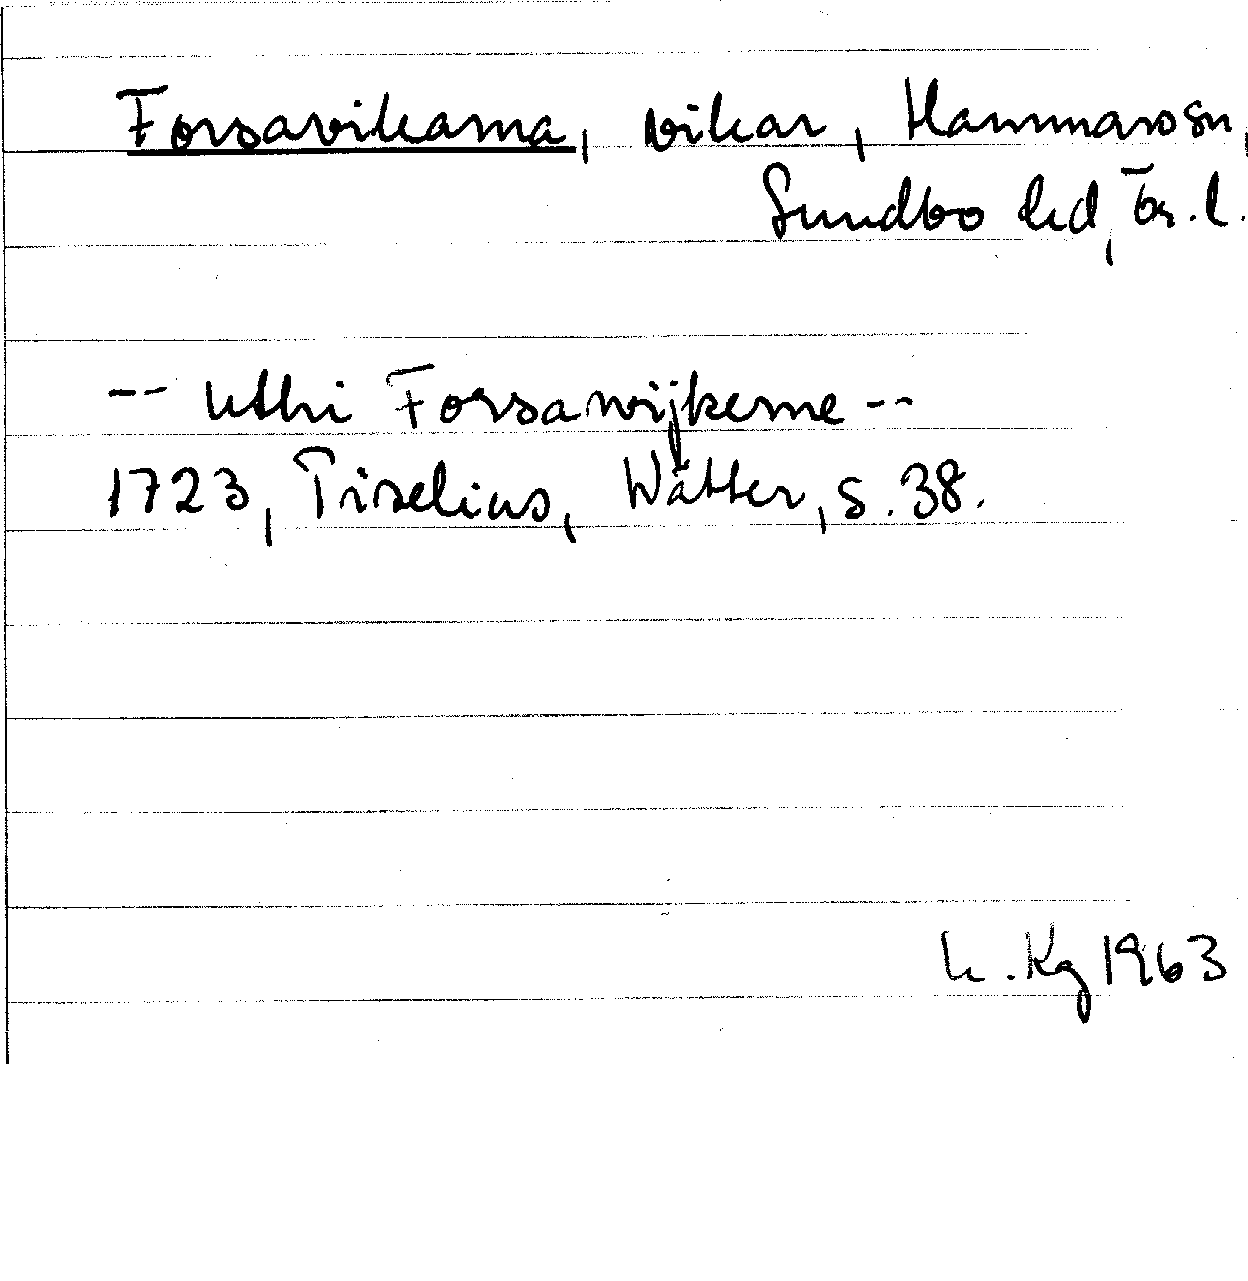 Forsavikarna, vikar, Hammars sn,
Sundbo hd, Ör. l.
-- uthi Forsawijkerne --
1723, Tiselius, Wätter, s. 38.
L. Kg 1963